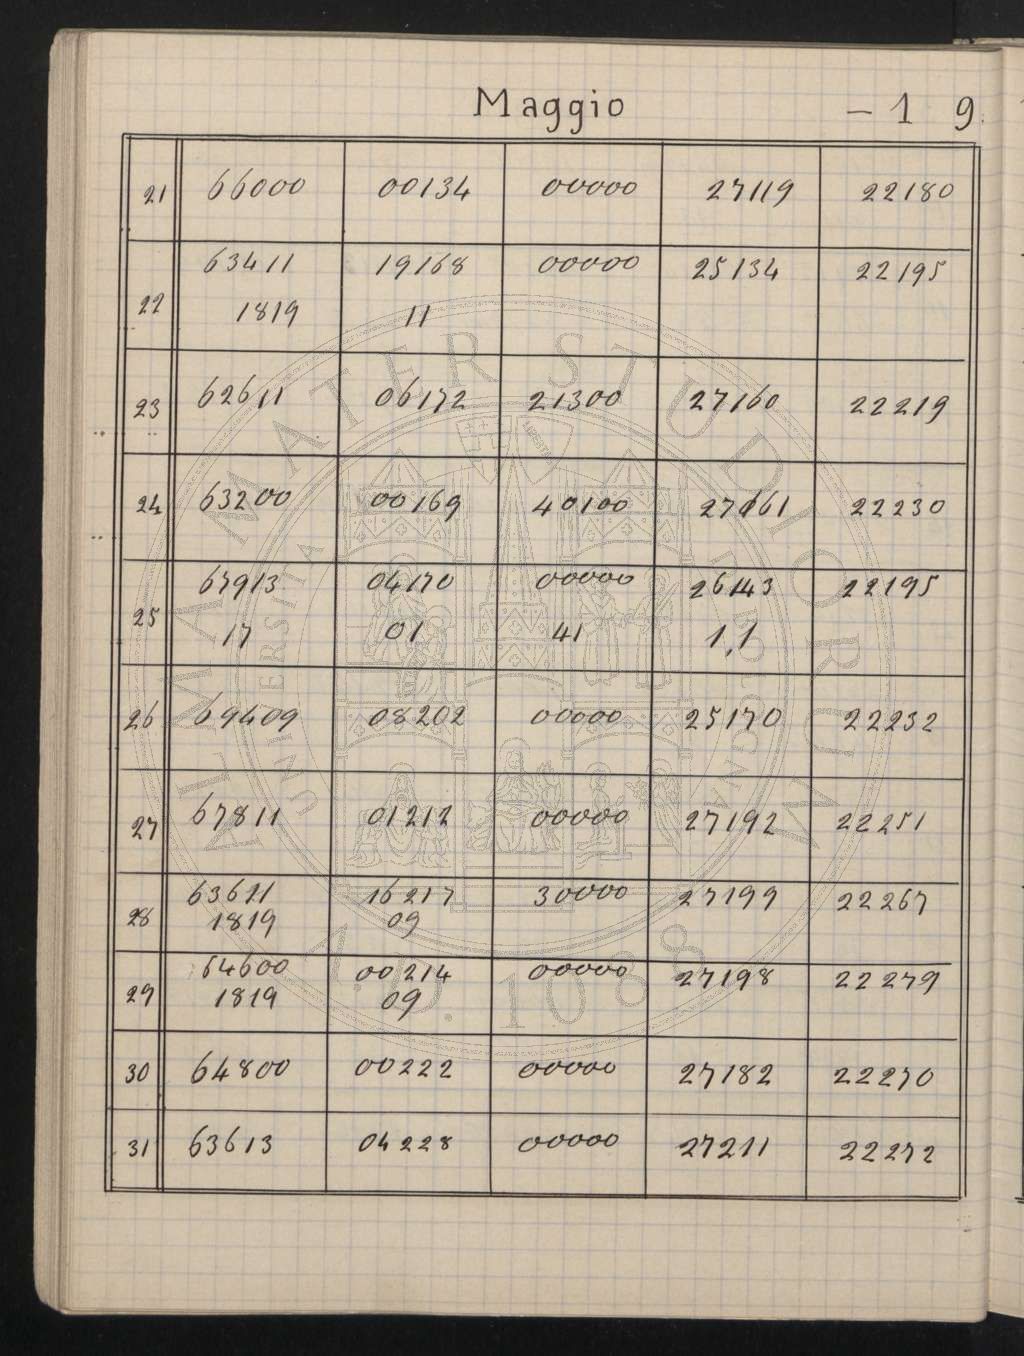 Maggio — 1 9
21 66000 00134 00000 27119 22180
63411 19168 00000 25134 22195
22 1819 11
23 62611 06172 21300 27160 22219
24 63200 00169 40100 27161 22230
67913 04170 00000 26143 22195
25 17 01 41 1,1
26 69409 08202 00000 25170 22232
27 67811 01212 00000 27192 22251
63611 16217 30000 27199 22267
28 1819 09
64600 00214 00000 27198 22279
29 1819 09
30 64800 00222 00000 27182 22270
31 63613 04228 00000 27211 22272
ALMA MATER STUDIORUM
A.D. 1088